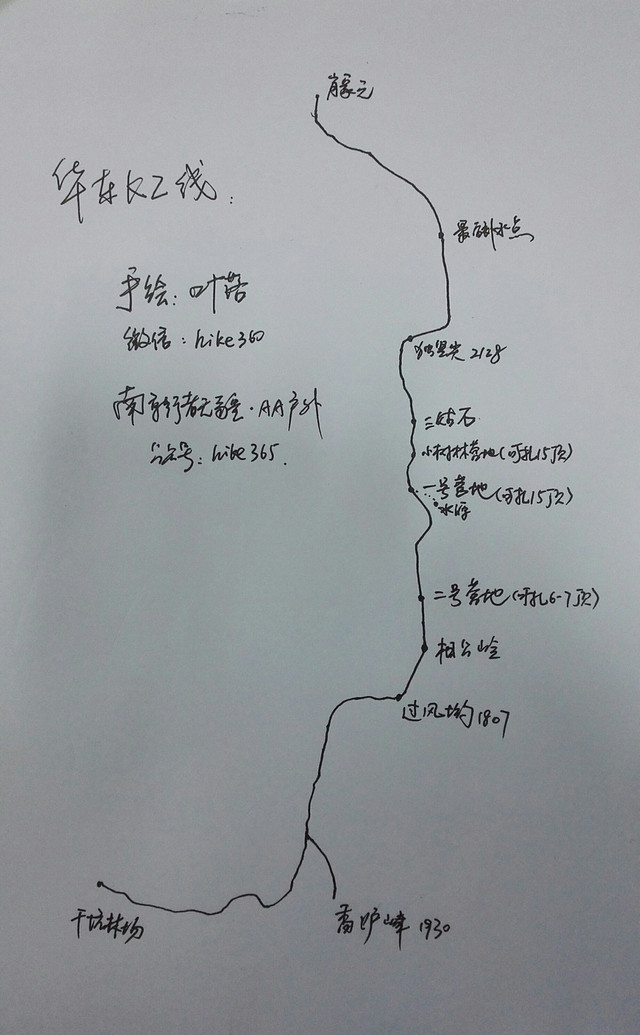 华东K2线:
手绘:叶落
微信:hike360
南京行者无疆·AA户外
公众号:hike365.
肖家元
最后补水点
独竖尖 2128
三姑石
小树林营地(可扎15顶)
一号营地(可扎15顶)
水源
二号营地(可扎6-7顶)
相公岭
过风坳 1807
香炉峰 1930
干坑林场